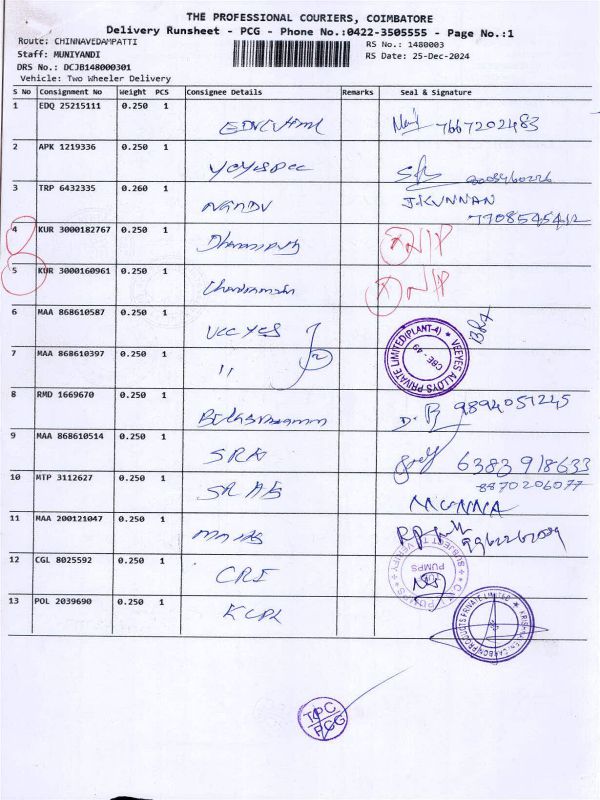 THE PROFESSIONAL COURIERS, COIMBATORE
Delivery Runsheet - PCG - Phone No.:0422-3505555 - Page No.:1
Route: CHINNAVEDAMPATTI
RS No.: 1480003
Staff: MUNIYANDI
RS Date: 25-Dec-2024
DRS No.: DCJB148000301
Vehicle: Two Wheeler Delivery
S No Consignment No Weight PCS Consignee Details Remarks Seal & Signature
1 EDQ 25215111 0.250 1 7667202483
2 APK 1219336 0.250 1
3 TRP 6432335 0.260 1 J.KUNNAN
7708545412
4 KUR 3000182767 0.250 1 N/P
5 KUR 3000160961 0.250 1 N/P
6 MAA 868610587 0.250 1 VEEYES
VEEYES ALLOYS PRIVATE LIMITED (PLANT-4) CBE - 49
7 MAA 868610397 0.250 1 "
8 RMD 1669670 0.250 1 9894051245
9 MAA 868610514 0.250 1 SRA 6383918633
10 MTP 3112627 0.250 1 8870206077
MUNNA
11 MAA 200121047 0.250 1
12 CGL 8025592 0.250 1 CRI
PUMPS
13 POL 2039690 0.250 1 KCPL
TPC
PCG